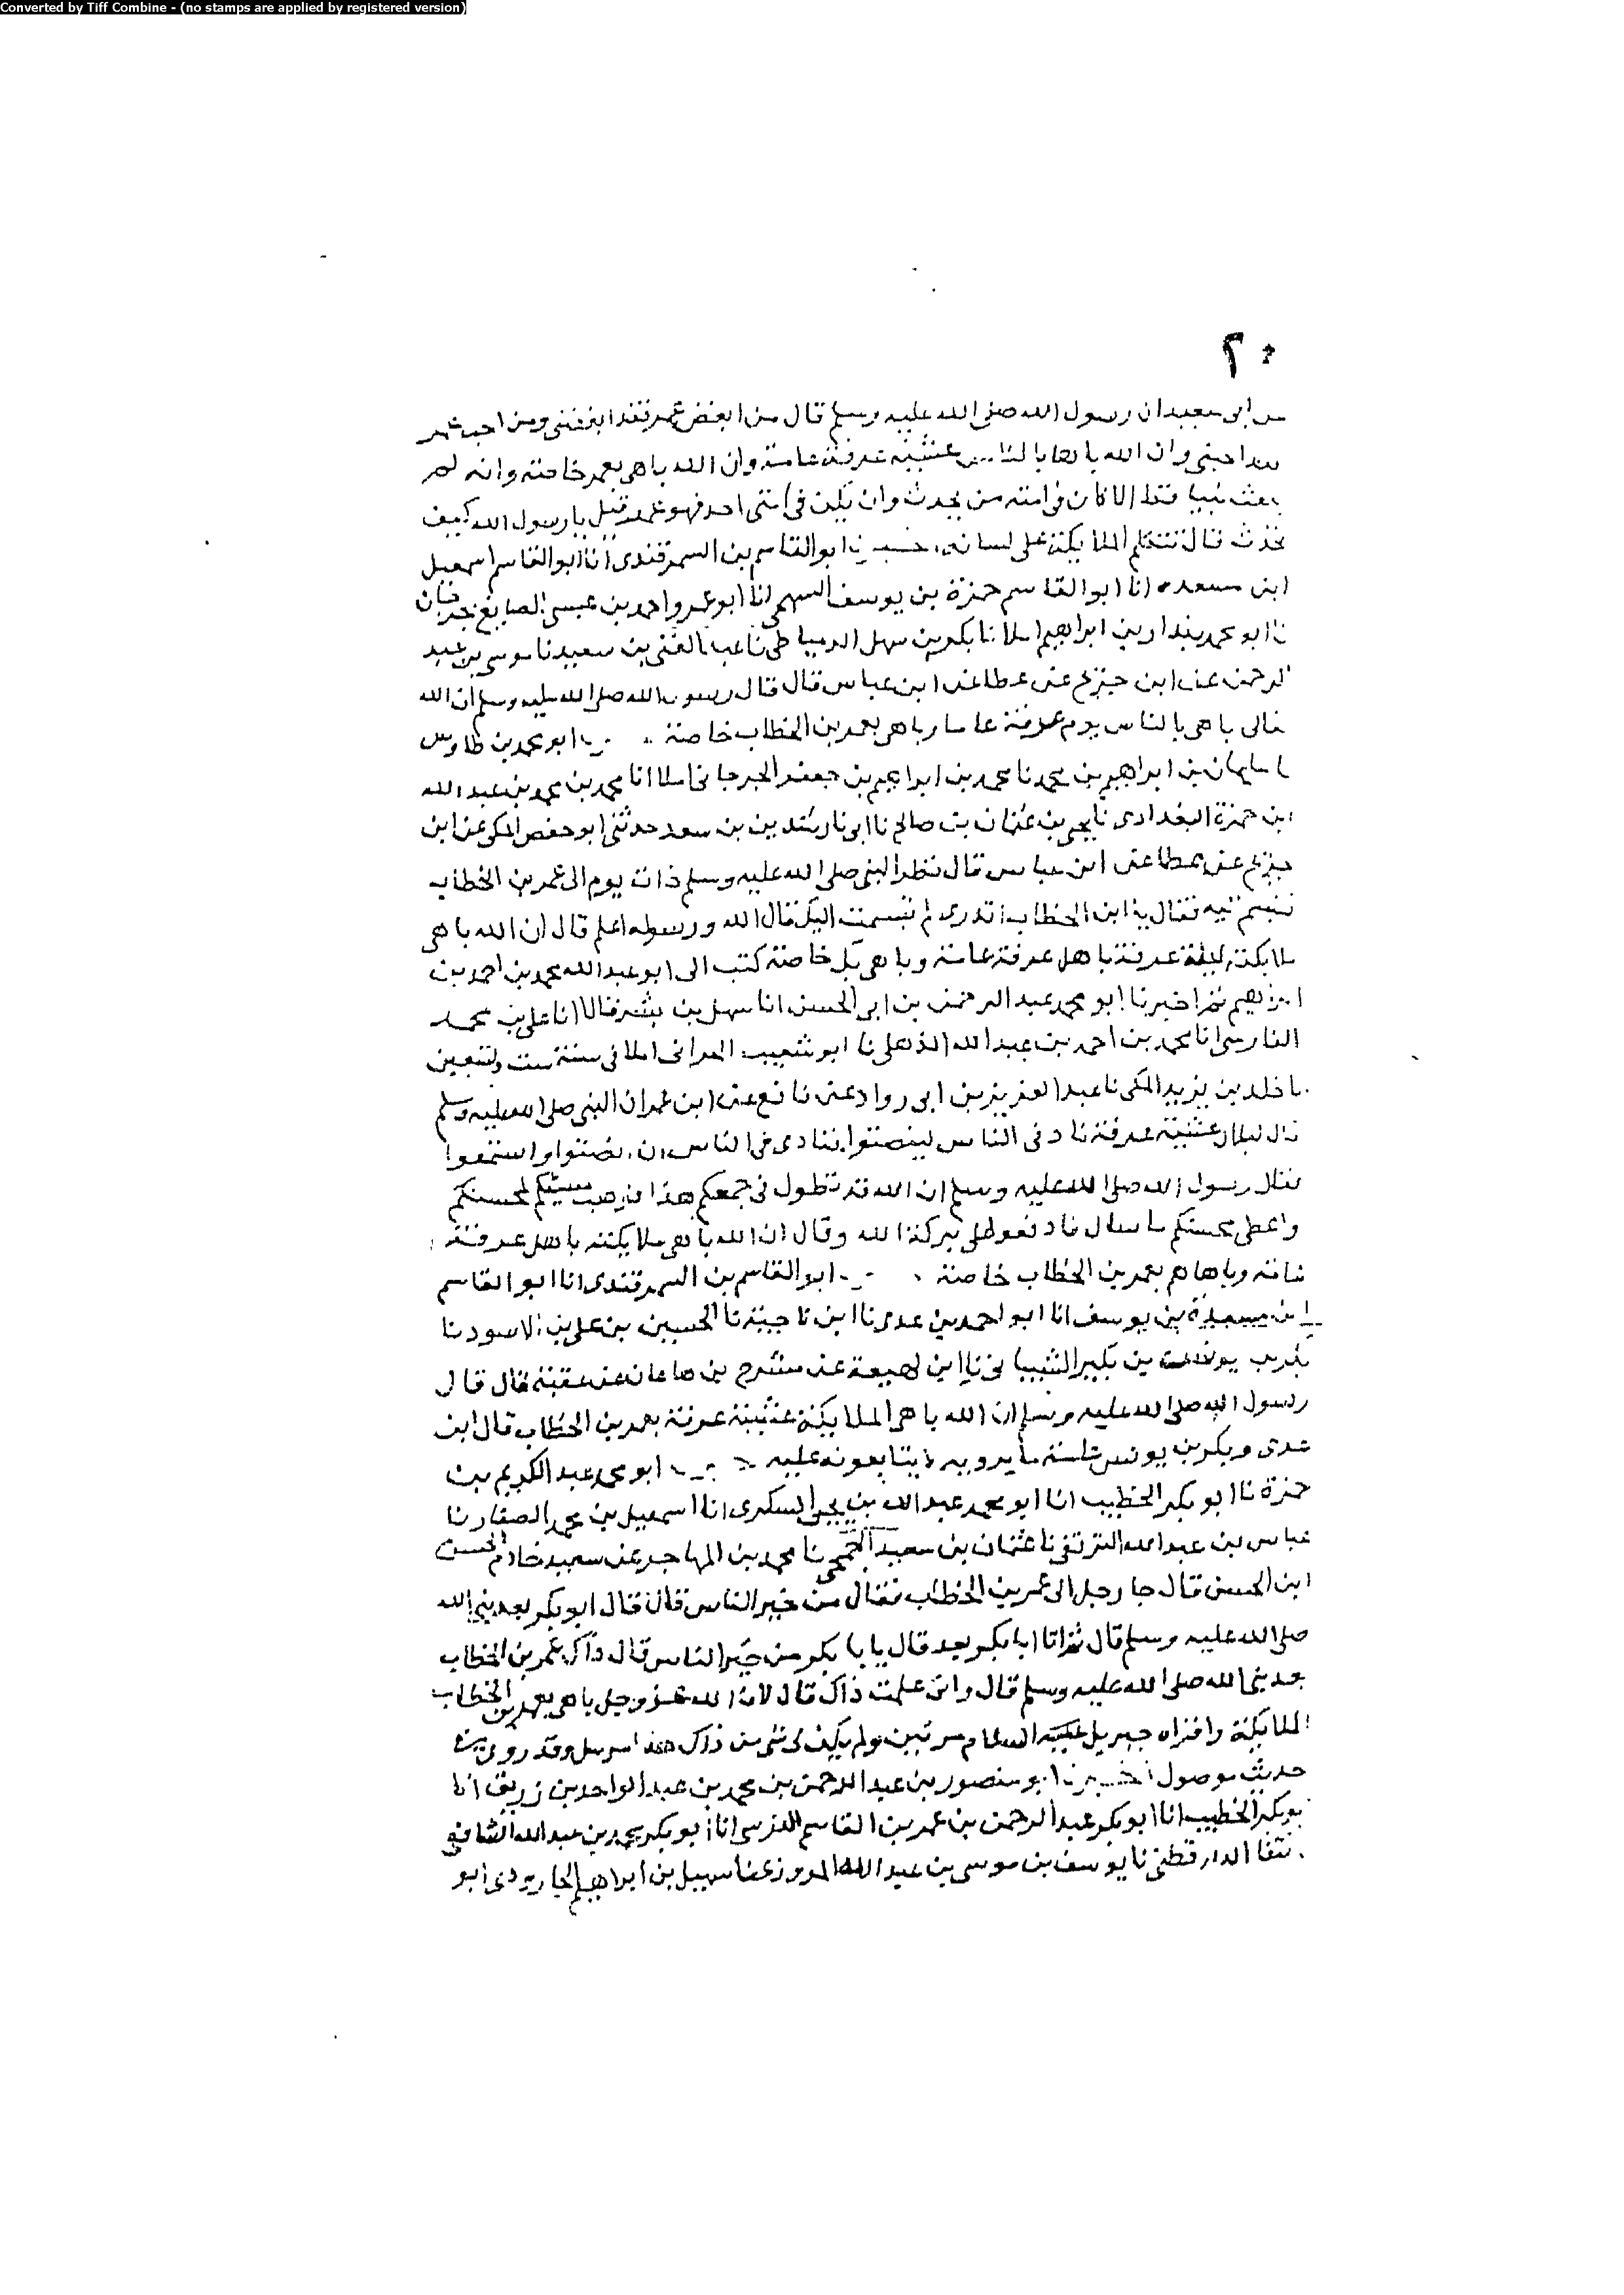 Converted by Tiff Combine - (no stamps are applied by registered version)
٢٠
ابى سعيد ان رسول الله صلى الله عليه وسلم قال من ابغض عمر فقد ابغضنى ومن احب عمر
فقد احبنى وان الله باها بالناس عشية عرفة عامة وان الله باهى بعمر خاصة وانه لم
يبعث نبيا قط الا كان فى امته من يحدث وان يكن فى امتى احد فهو عمر قيل يا رسول الله كيف
يحدث قال تتكلم الملايكة على لسانه ابو القاسم بن السمرقندى انا ابو القاسم اسمعيل
ابن مسعدة انا ابو القاسم حمزة بن يوسف السهمى انا ابو عمرو احمد بن عيسى الصايغ بجرجان
نا ابو محمد بندار بن ابراهيم املا نا بكر بن سهل الدمياطى نا عبد الغنى بن سعيد نا موسى بن عبد
الرحمن عن ابن جريج عن عطا عن ابن عباس قال قال رسول الله صلى الله عليه وسلم ان الله
تعالى باهى بالناس يوم عرفة عاما وباهى بعمر بن الخطاب خاصة ابو محمد بن طاوس
سليمان بن ابراهيم بن محمد نا محمد بن ابراهيم بن جعفر الجرجانى املا انا محمد بن محمد بن عبد الله
ابن حمزة البغدادى نا يحيى بن عثمان بن صالح نا ابى نا رشدين بن سعد حدثنى ابو حفص المكى عن ابن
جريج عن عطا عن ابن عباس قال نظر النبى صلى الله عليه وسلم ذات يوم الى عمر بن الخطاب
فتبسم اليه فقال يا ابن الخطاب اتدرى لم تبسمت اليك قال الله ورسوله اعلم قال ان الله باهى
ملايكته ليلة عرفة باهل عرفة عامة وباهى بك خاصة كتب الى ابو عبد الله محمد بن احمد بن
ابراهيم ثم اخبرنا ابو محمد عبد الرحمن بن ابى الحسن انا سهل بن بشر قالا انا على بن محمد
الفارسى انا محمد بن احمد بن عبد الله الذهلى نا ابو شعيب الحرانى املا فى سنة ست وتسعين
نا خلد بن يزيد المكى نا عبد العزيز بن ابى رواد عن نافع عن ابن عمر ان النبى صلى الله عليه وسلم
قال لبلال عشية عرفة ناد فى الناس لينصتوا فنادى فى الناس ان انصتوا واستمعوا
فقال رسول الله صلى الله عليه وسلم ان الله قد تطول فى جمعكم هذا فوهب مسيئكم لمحسنكم
واعطى محسنكم ما سال فادفعوا على بركة الله وقال ان الله باهى ملايكته باهل عرفة
عامة وباهاهم بعمر بن الخطاب خاصة ابو القاسم بن السمرقندى انا ابو القاسم
ابن مسعدة بن يوسف انا ابو احمد بن عدى نا ابن ناجية نا الحسين بن على بن الاسود نا
بكر بن يونس بن بكير الشيبانى نا ابن لهيعة عن مشرح بن هاعان عن عقبة قال قال
رسول الله صلى الله عليه وسلم ان الله باهى الملايكة عشية عرفة بعمر بن الخطاب قال ابن
عدى وبكر بن يونس عامة ما يرويه لا يتابعونه عليه ابو محمد عبد الكريم بن
حمزة نا ابو بكر الخطيب انا ابو محمد عبد الله بن يحيى السكرى انا اسمعيل بن محمد الصفار نا
عباس بن عبد الله الترقفى نا عثمان بن سعيد الحمصى نا محمد بن المهاجر عن سعيد خادم الحسن
ابن الحسن قال جا رجل الى عمر بن الخطاب فقال من خير الناس قال ابو بكر بعد نبى الله
صلى الله عليه وسلم قال ثم اتا ابا بكر بعد قال يا با بكر من خير الناس قال ذاك عمر بن الخطاب
بعد نبى الله صلى الله عليه وسلم قال وانى علمت ذاك قال لان الله عز وجل باهى بعمر بن الخطاب
الملايكة واقراه جبريل عليه السلام مرتين ولم يكن لى شى من ذاك هذا مرسل وقد روى من
حديث موصول ابو منصور بن عبد الرحمن بن محمد بن عبد الواحد بن زريق انا
ابو بكر الخطيب انا ابو بكر عبد الرحمن بن عمر بن القاسم النرسى انا ابو بكر محمد بن عبد الله الشافعى
الدارقطنى نا يوسف بن موسى بن عبد الله المروزى نا سهيل بن ابراهيم الجارودى ابو